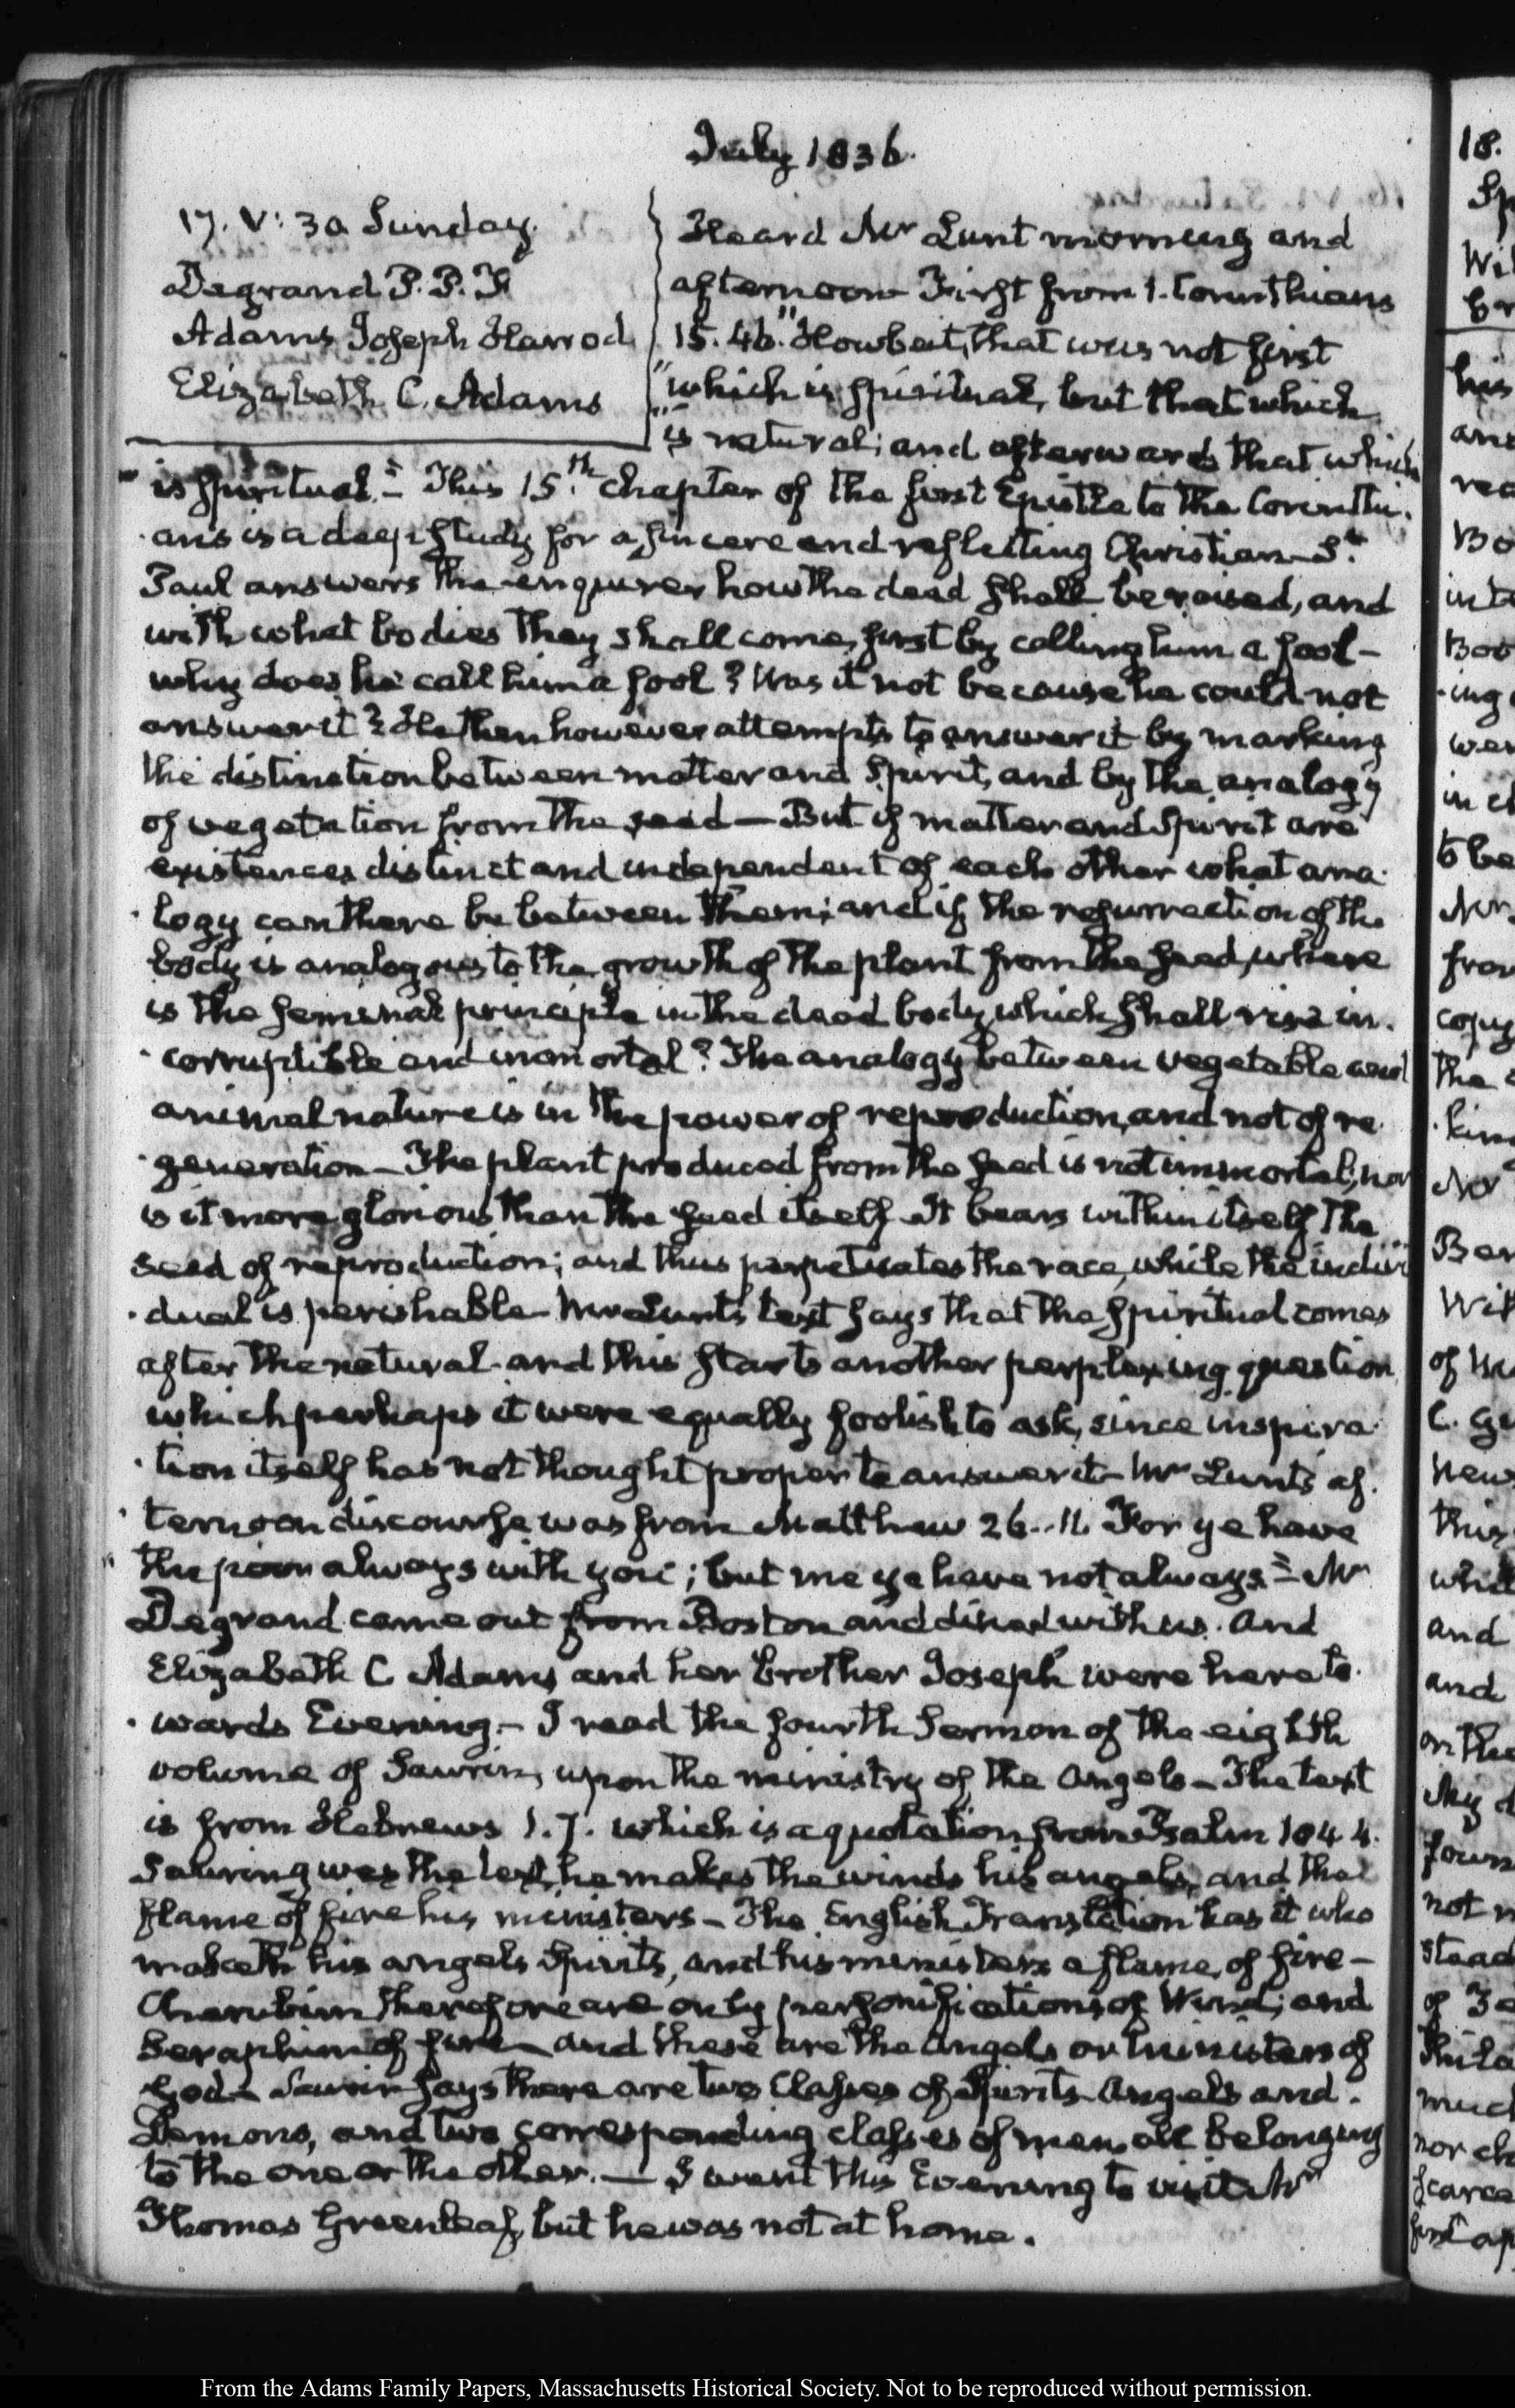 July 1836.
17. V: 30 Sunday.
Degrand P. P. F.
Adams Joseph Harrod
Elizabeth C. Adams
Heard Mr Lunt morning and
afternoon First from 1. Corinthians
15. 46. "Howbeit, that was not first
"which is spiritual, but that which
"is natural; and afterwards that which
"is spiritual." This 15.th chapter of the first Epistle to the Corinthi-
-ans is a deep study for a sincere and reflecting Christian St.
Paul answers the enquirer how the dead shall be raised, and
with what bodies they shall come, first by calling him a fool-
why does he call him a fool? Was it not because he could not
answer it? He then however attempts to answer it by marking
the distinction between matter and spirit, and by the analogy
of vegetation from the seed — But if matter and spirit are
existences distinct and independent of each other what ana-
-logy can there be between them; and if the resurrection of the
body is analogous to the growth of the plant from the seed, where
is the seminal principle in the dead body which shall rise in-
-corruptible and immortal? The analogy between vegetable and
animal nature is in the power of reproduction, and not of re-
-generation — The plant produced from the seed is not immortal; nor
is it more glorious than the seed itself It bears within itself the
seed of reproduction; and thus perpetuates the race, while the indivi-
-dual is perishable Mr Lunt's text says that the spiritual comes
after the natural. and this starts another perplexing question
which perhaps it were equally foolish to ask, since inspira-
-tion itself has not thought proper to answer it — Mr Lunt's af-
-ternoon discourse was from Matthew 26..11. For ye have
"the poor always with you; but me ye have not always." Mr
Degrand came out from Boston and dined with us. And
Elizabeth C Adams and her brother Joseph were here to-
-wards Evening. — I read the fourth Sermon of the eighth
volume of Saurin, upon the ministry of the Angels — The text
is from Hebrews 1. 7. which is a quotation from Psalm 104. 4.
Saurin gives the text, he makes the winds his angels, and the
flame of fire his ministers — The English Translation has it who
maketh his angels Spirits, and his ministers a flame of fire —
Cherubim therefore are only personifications of Wind; and
Seraphim of fire — and these are the Angels or ministers of
God — Saurin says there are two Classes of Spirits Angels and
Demons, and two corresponding classes of men all belonging
to the one or the other. — I went this Evening to visit Mr
Thomas Greenleaf, but he was not at home.
18.
From the Adams Family Papers, Massachusetts Historical Society. Not to be reproduced without permission.